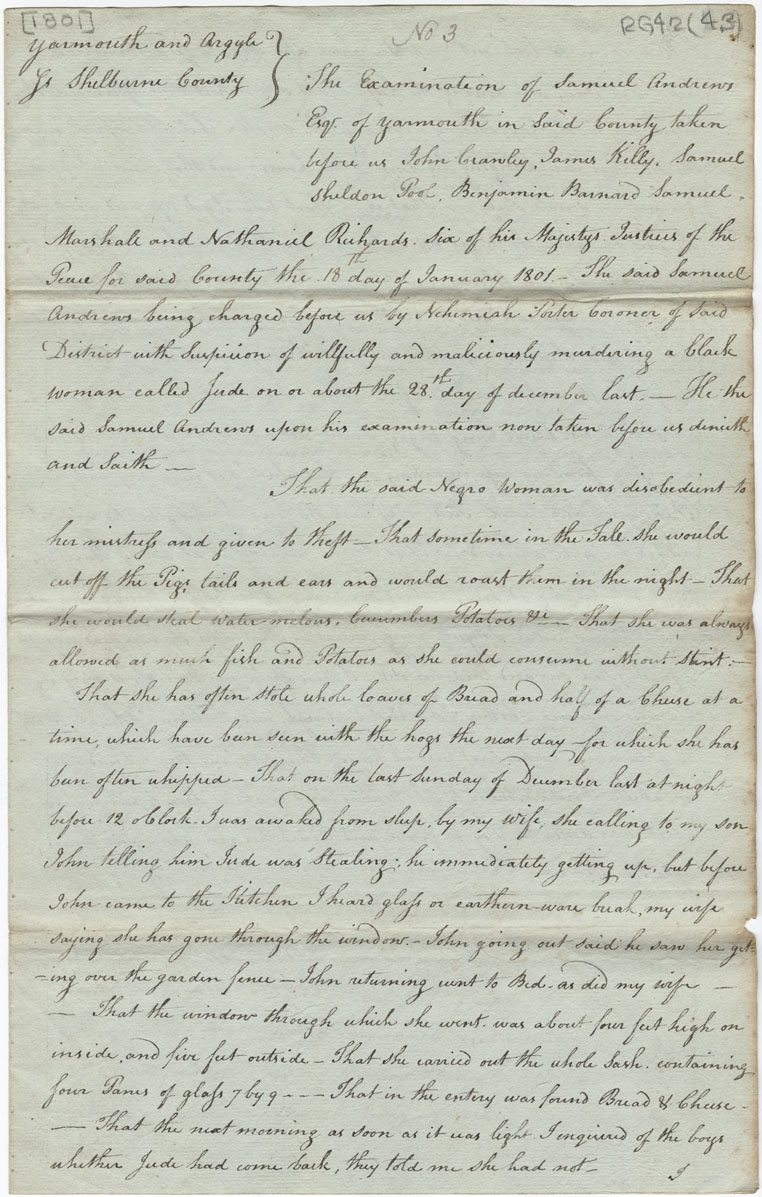 [1801]
No 3
RG42 (43)
Yarmouth and Argyle }
Ss Shelburne County }
The Examination of Samuel Andrews
Esqr. of Yarmouth in said County taken
before us John Crawley, James Killy, Samuel
Sheldon Pool, Benjamin Barnard Samuel
Marshall and Nathaniel Richards. Six of his Majestys Justices of the
Peace for said County the 18th day of January 1801 — The said Samuel
Andrews being charged before us by Nehemiah Porter Coroner of said
District with Suspicion of willfully and maliciously murdering a black
woman called Jude on or about the 28th day of december last. — He the
said Samuel Andrews upon his examination now taken before us denieth
and Saith —
That the said Negro Woman was disobedient to
her mistress and given to theft — That sometime in the Fale she would
cut off the Pigs tails and ears and would roast them in the night — That
she would steal water-melons, Cucumbers Potatoes &c — That she was always
allowed as much fish and Potatoes as she could consume without Stint. —
That she has often stole whole loaves of Bread and half of a Cheese at a
time, which have been seen with the hogs the next day — for which she has
been often whipped — That on the last Sunday of December last at night
before 12 oClock. I was awaked from sleep, by my wife, she calling to my son
John telling him Jude was Stealing; he immediately getting up, but before
John came to the Kitchen I heard glass or earthern-ware break, my wife
saying she has gone through the window. — John going out said he saw her get-
-ing over the garden fence — John returning went to Bed. as did my wife —
— That the window through which she went. was about four feet high on
inside, and five feet outside — That she carried out the whole Sash. containing
four Panes of glass 7 by 9 - - - That in the entery was found Bread & Cheese -
— That the next morning as soon as it was light I enquired of the boys
whether Jude had come back, they told me she had not —
I